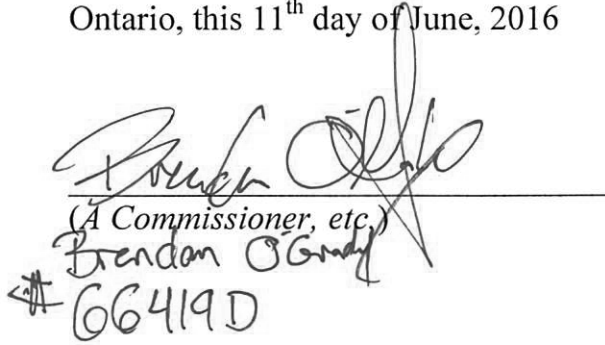 Ontario, this 11th day of June, 2016
Brendan O'Grady
(A Commissioner, etc.)
Brendan O'Grady
# 66419D